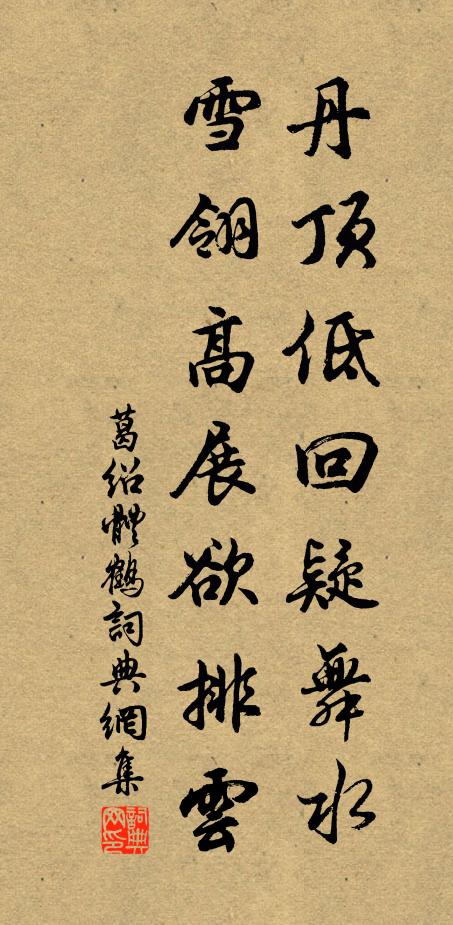 丹頂低回疑舞水
雪翎高展欲排雲
葛紹體鶴詞典網集
詞典網印